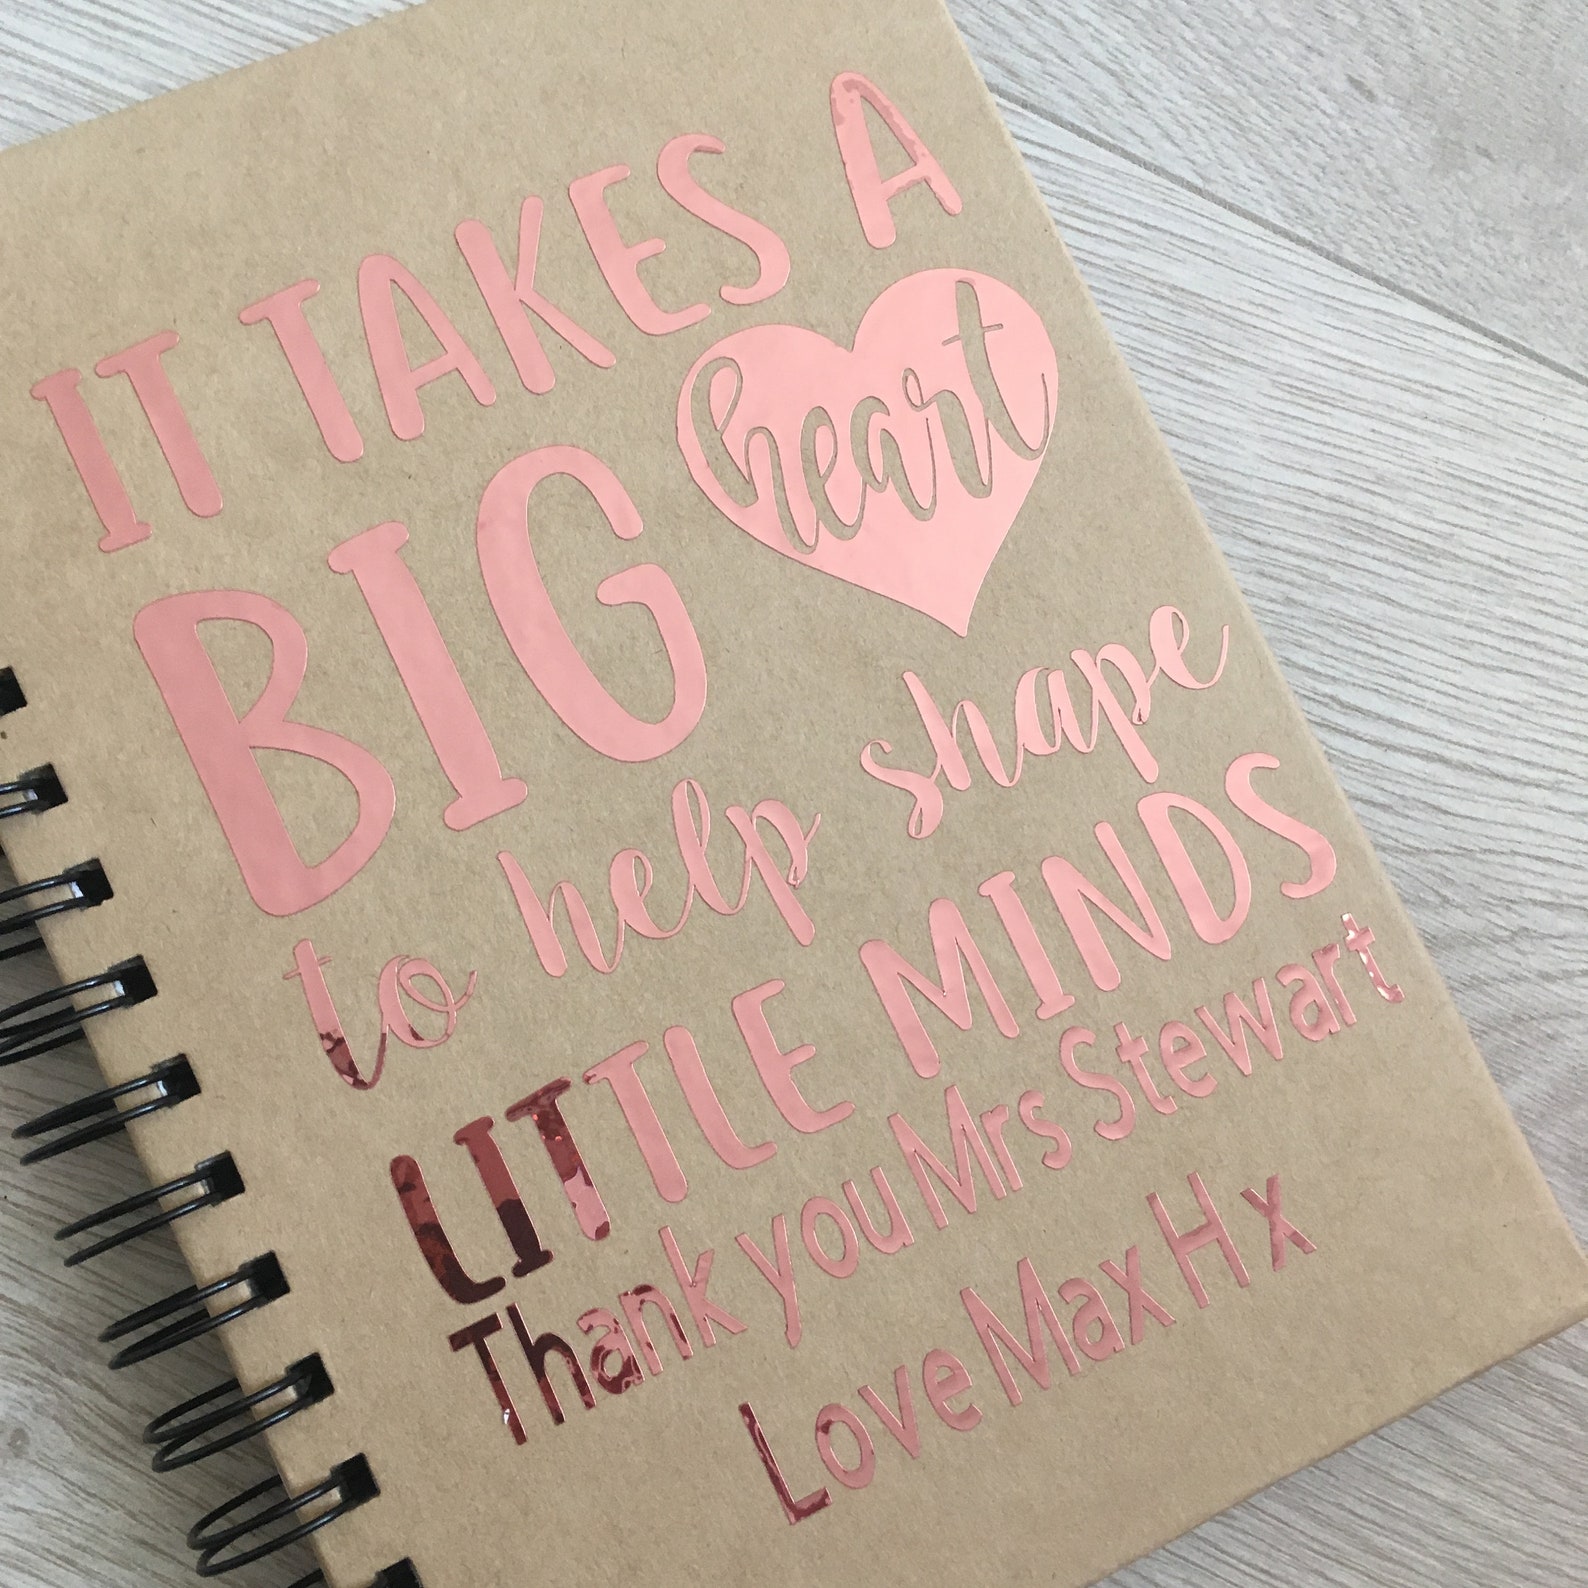 IT TAKES A
BIG heart
to help shape
LITTLE MINDS
Thank you Mrs Stewart
Love Max H x